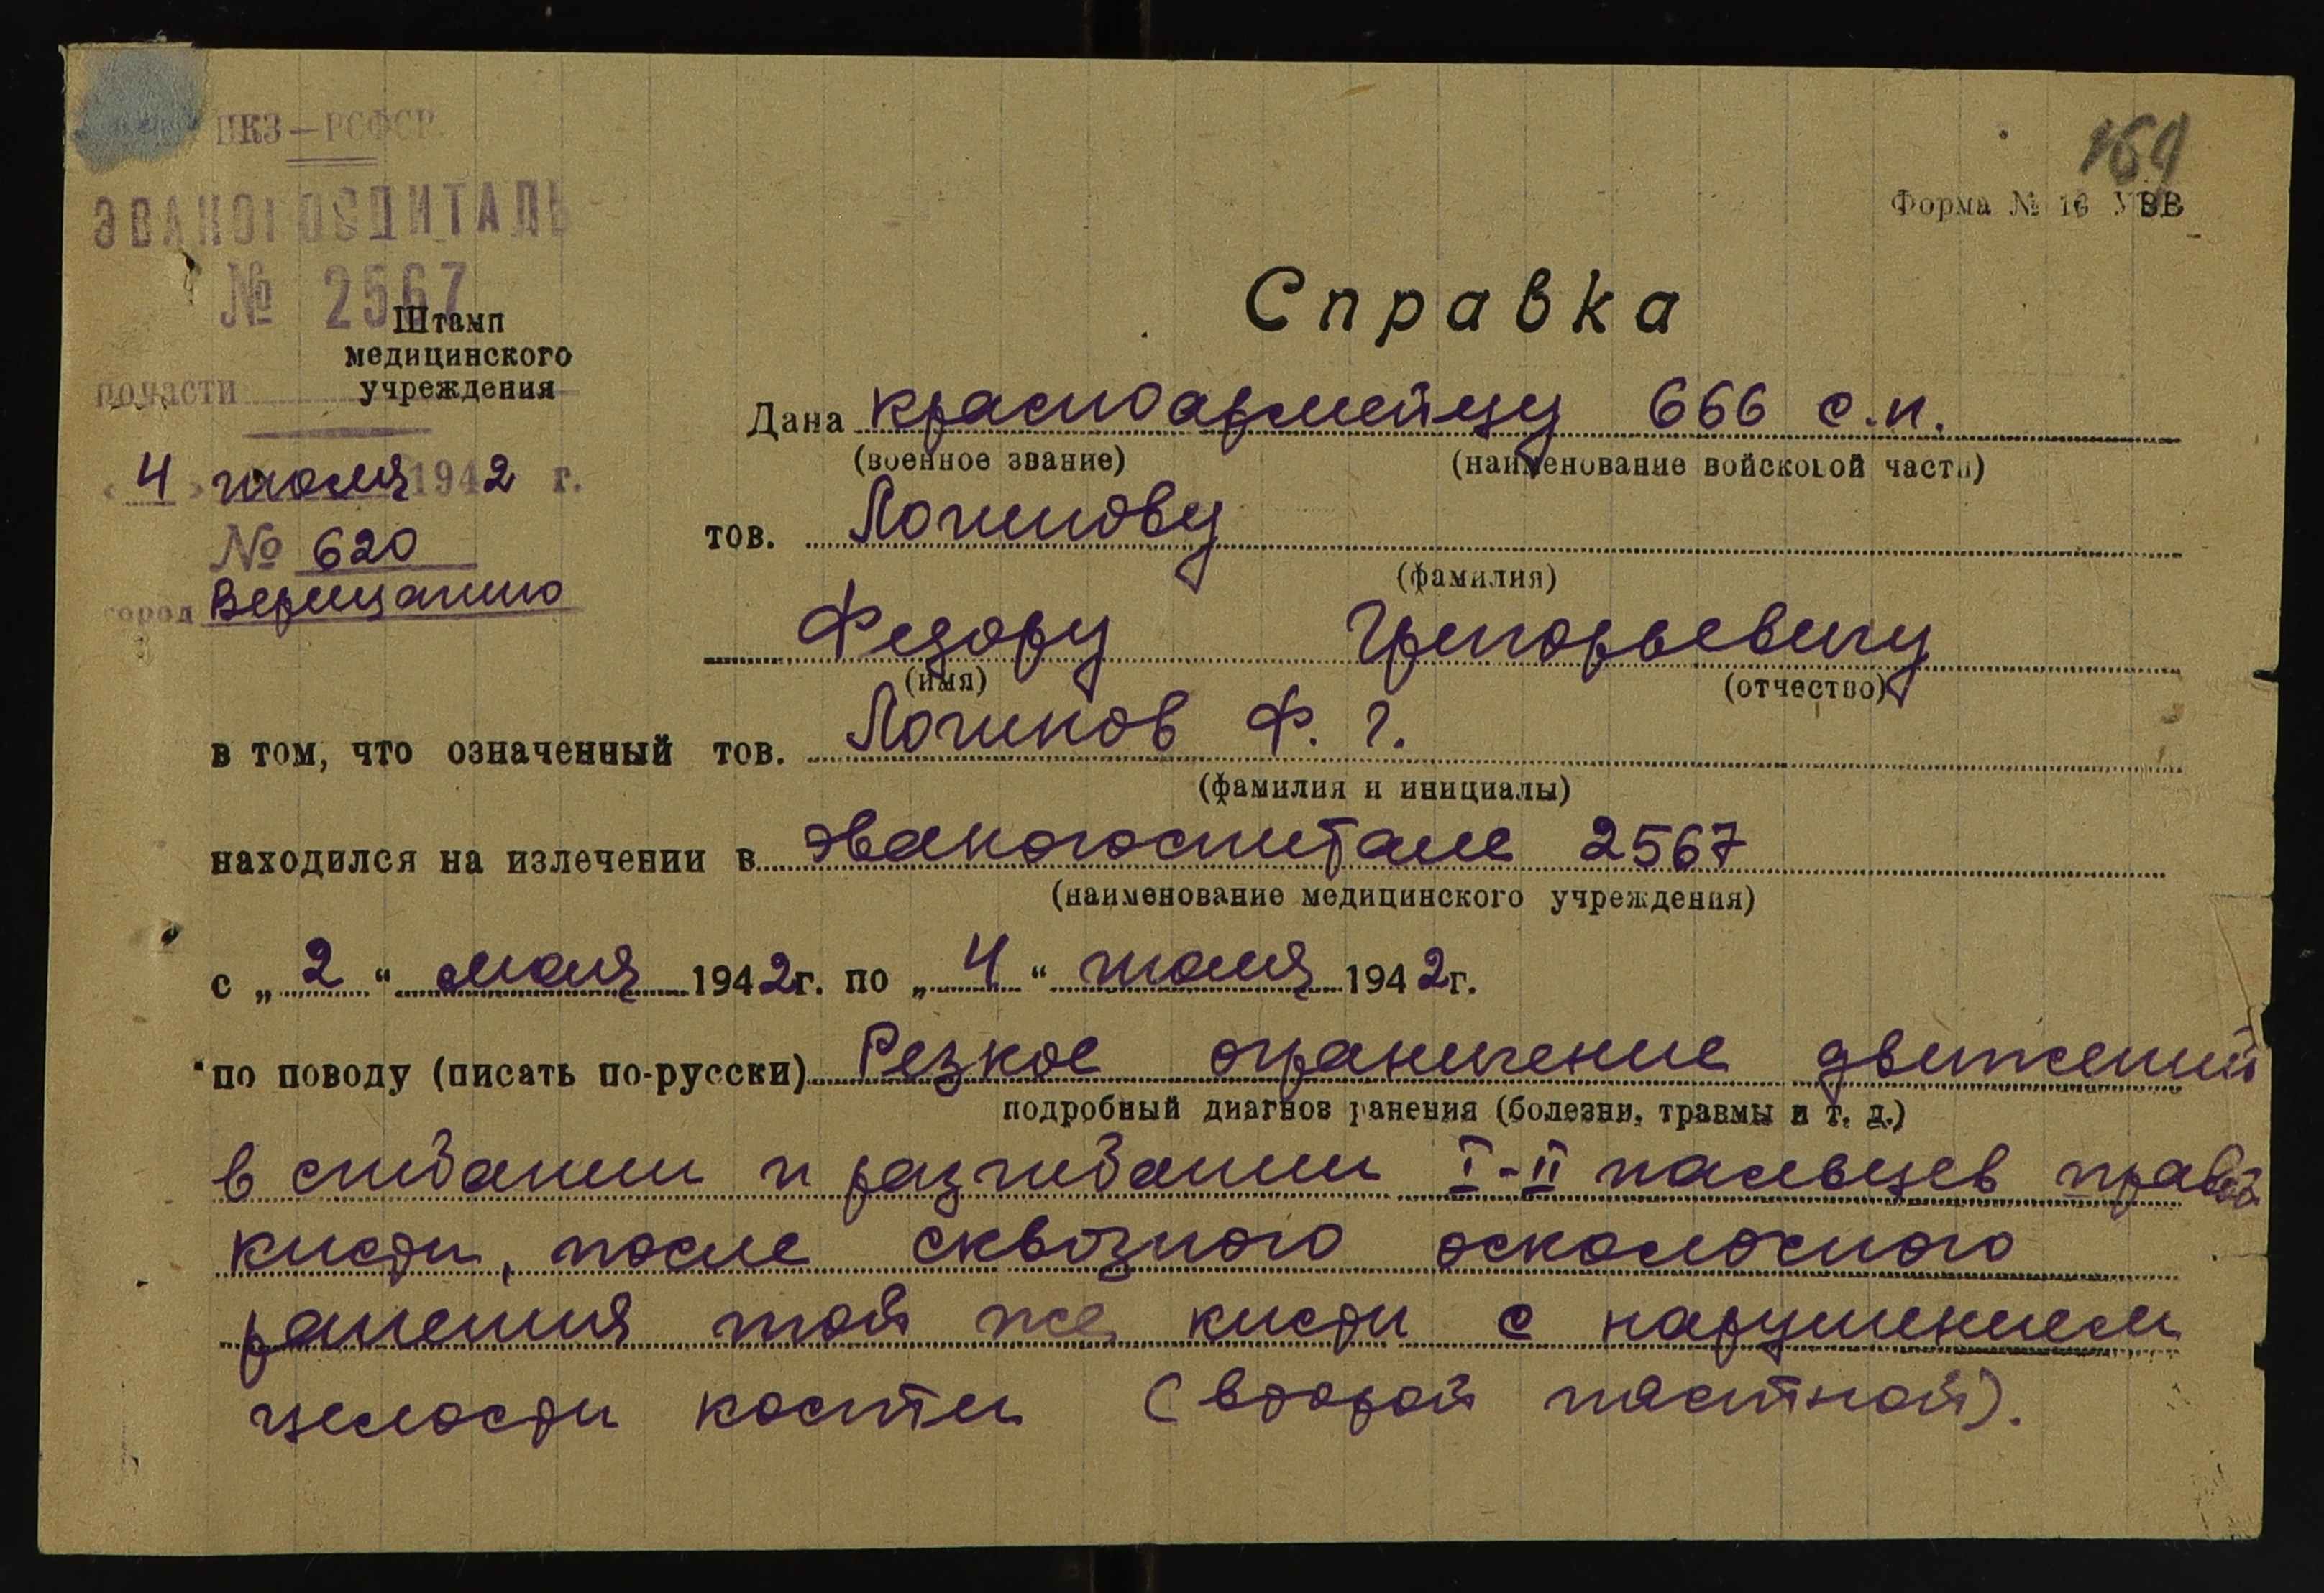 НКЗ — РСФСР
ЭВАКОГОСПИТАЛЬ
№ 2567
Штамп
медицинского
учреждения
почасти
«4» июля 1942 г.
№ 620
город Верещагино
169
Форма № 16 УВВ
Справка
Дана красноармейцу 666 с.п.
(военное звание) (наименование войсковой части)
тов. Логинову
(фамилия)
Федору Григорьевичу
(имя) (отчество)
в том, что означенный тов. Логинов Ф. Г.
(фамилия и инициалы)
находился на излечении в эвакогоспитале 2567
(наименование медицинского учреждения)
с „2“ мая 1942г. по „4“ июля 1942г.
по поводу (писать по-русски) Резкое ограничение движений
подробный диагноз ранения (болезни, травмы и т. д.)
в сгибании и разгибании I-II пальцев правой
кисти, после сквозного осколочного
ранения той же кисти с нарушением
целости кости (второй пястной).